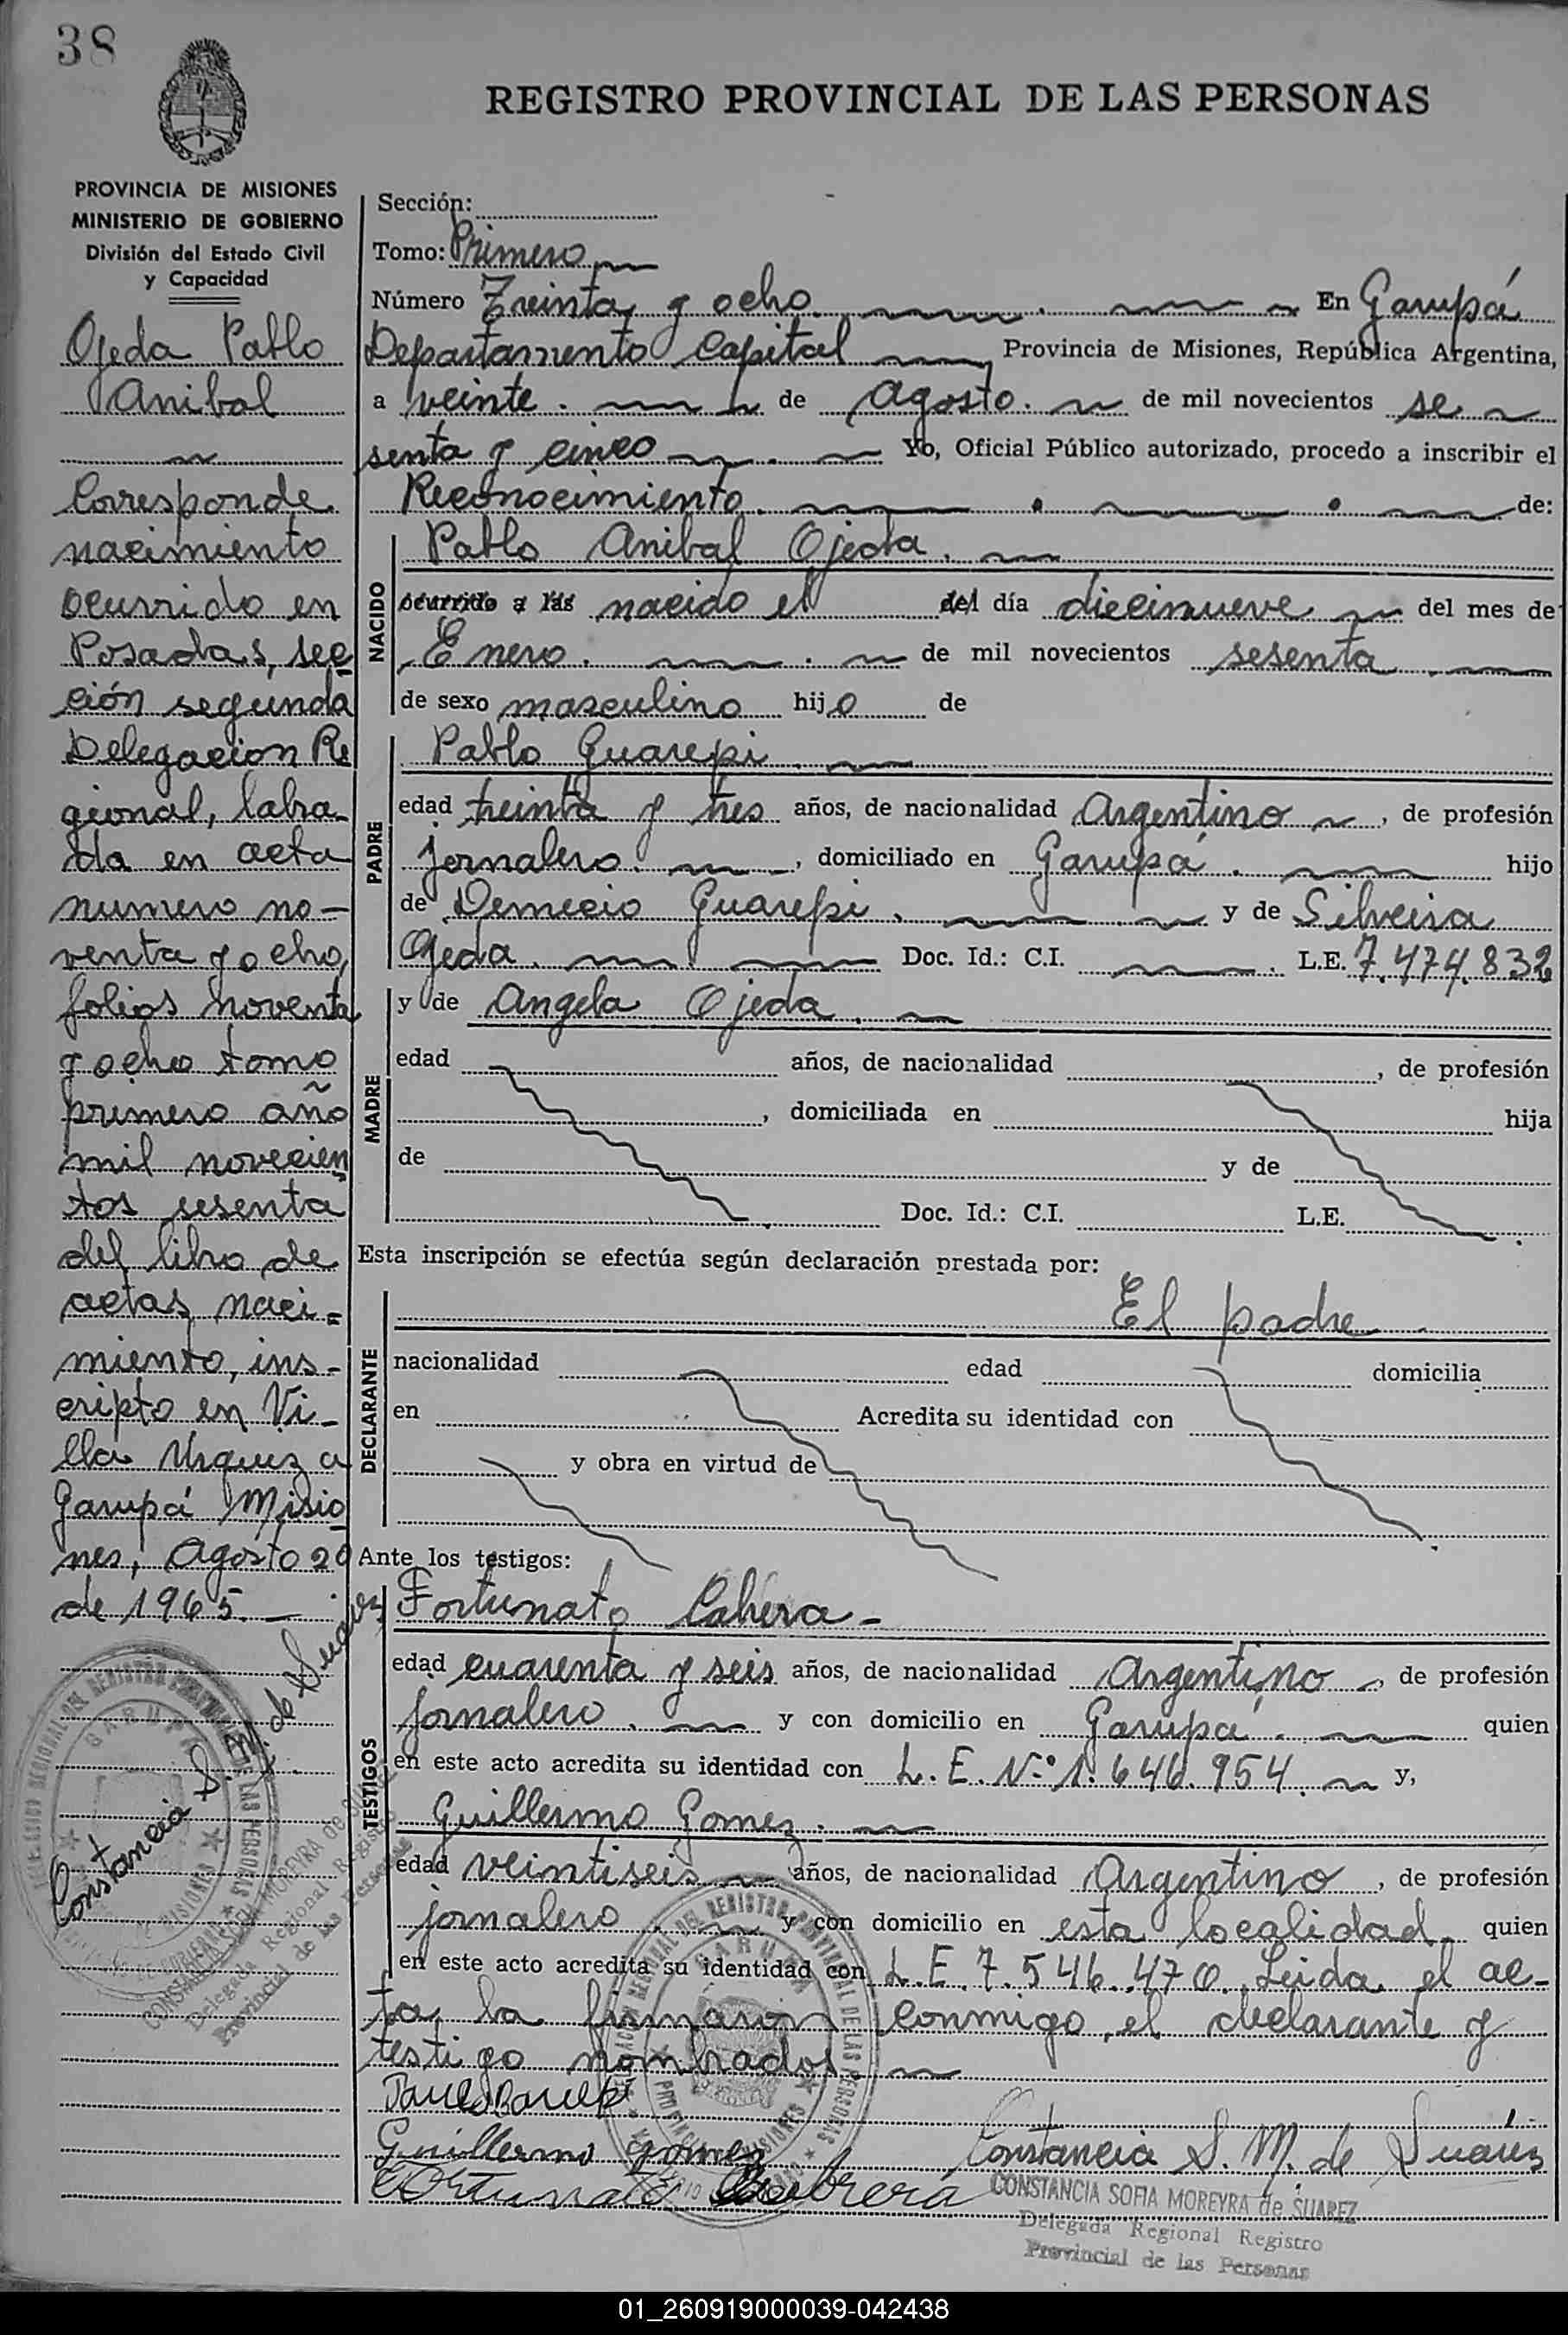 38
REGISTRO PROVINCIAL DE LAS PERSONAS
PROVINCIA DE MISIONES
MINISTERIO DE GOBIERNO
División del Estado Civil
y Capacidad
Ojeda Pablo
Anibal
Corresponde
nacimiento
ocurrido en
Posadas, sec
ción segunda
Delegacion Re
gional, labra-
da en acta
numero no-
venta y ocho,
folios noventa
y ocho tomo
primero año
mil novecien
tos sesenta
del libro de
actas naci=
miento, ins-
cripto en Vi-
lla Urquiza
Garupá Misio
nes, Agosto 20
de 1965.-
Constancia S. M. de Suarez
CONSTANCIA SOFIA MOREYRA de SUAREZ
Delegada Regional Registro
Provincial de las Personas
Sección:
Tomo: Primero
Número Treinta y ocho. En Garupá
Departamento Capital Provincia de Misiones, República Argentina,
a veinte. de Agosto. de mil novecientos se
senta y cinco Yo, Oficial Público autorizado, procedo a inscribir el
Reconocimiento. de:
NACIDO
Pablo Anibal Ojeda.
ocurrido a las nacido el del día diecinueve del mes de
Enero. de mil novecientos sesenta
de sexo masculino hijo de
PADRE
Pablo Guarepi.
edad treinta y tres años, de nacionalidad Argentino, de profesión
jornalero. , domiciliado en Garupá. hijo
de Demecio Guarepi. y de Silveira
Ojeda. Doc. Id.: C.I. L.E. 7.474.832
MADRE
y de Angela Ojeda.
edad años, de nacionalidad , de profesión
, domiciliada en hija
de y de
Doc. Id.: C.I. L.E.
Esta inscripción se efectúa según declaración prestada por:
DECLARANTE
El padre
nacionalidad edad domicilia
en Acredita su identidad con
y obra en virtud de
Ante los testigos:
TESTIGOS
Fortunato Cabrera-
edad cuarenta y seis años, de nacionalidad Argentino, de profesión
jornalero. y con domicilio en Garupá. quien
en este acto acredita su identidad con L.E. Nº 1.646.954. y,
Guillermo Gomez.
edad veintiseis años, de nacionalidad Argentino, de profesión
jornalero. y con domicilio en esta localidad. quien
en este acto acredita su identidad con L.E. 7.546.470. Leida el ac-
ta, la firmaron conmigo, el declarante y
testigo nombrados.
Guillermo gomez
Fortunato Cabrera
Constancia S. M. de Suarez
CONSTANCIA SOFIA MOREYRA de SUAREZ
Delegada Regional Registro
Provincial de las Personas
01_260919000039-042438